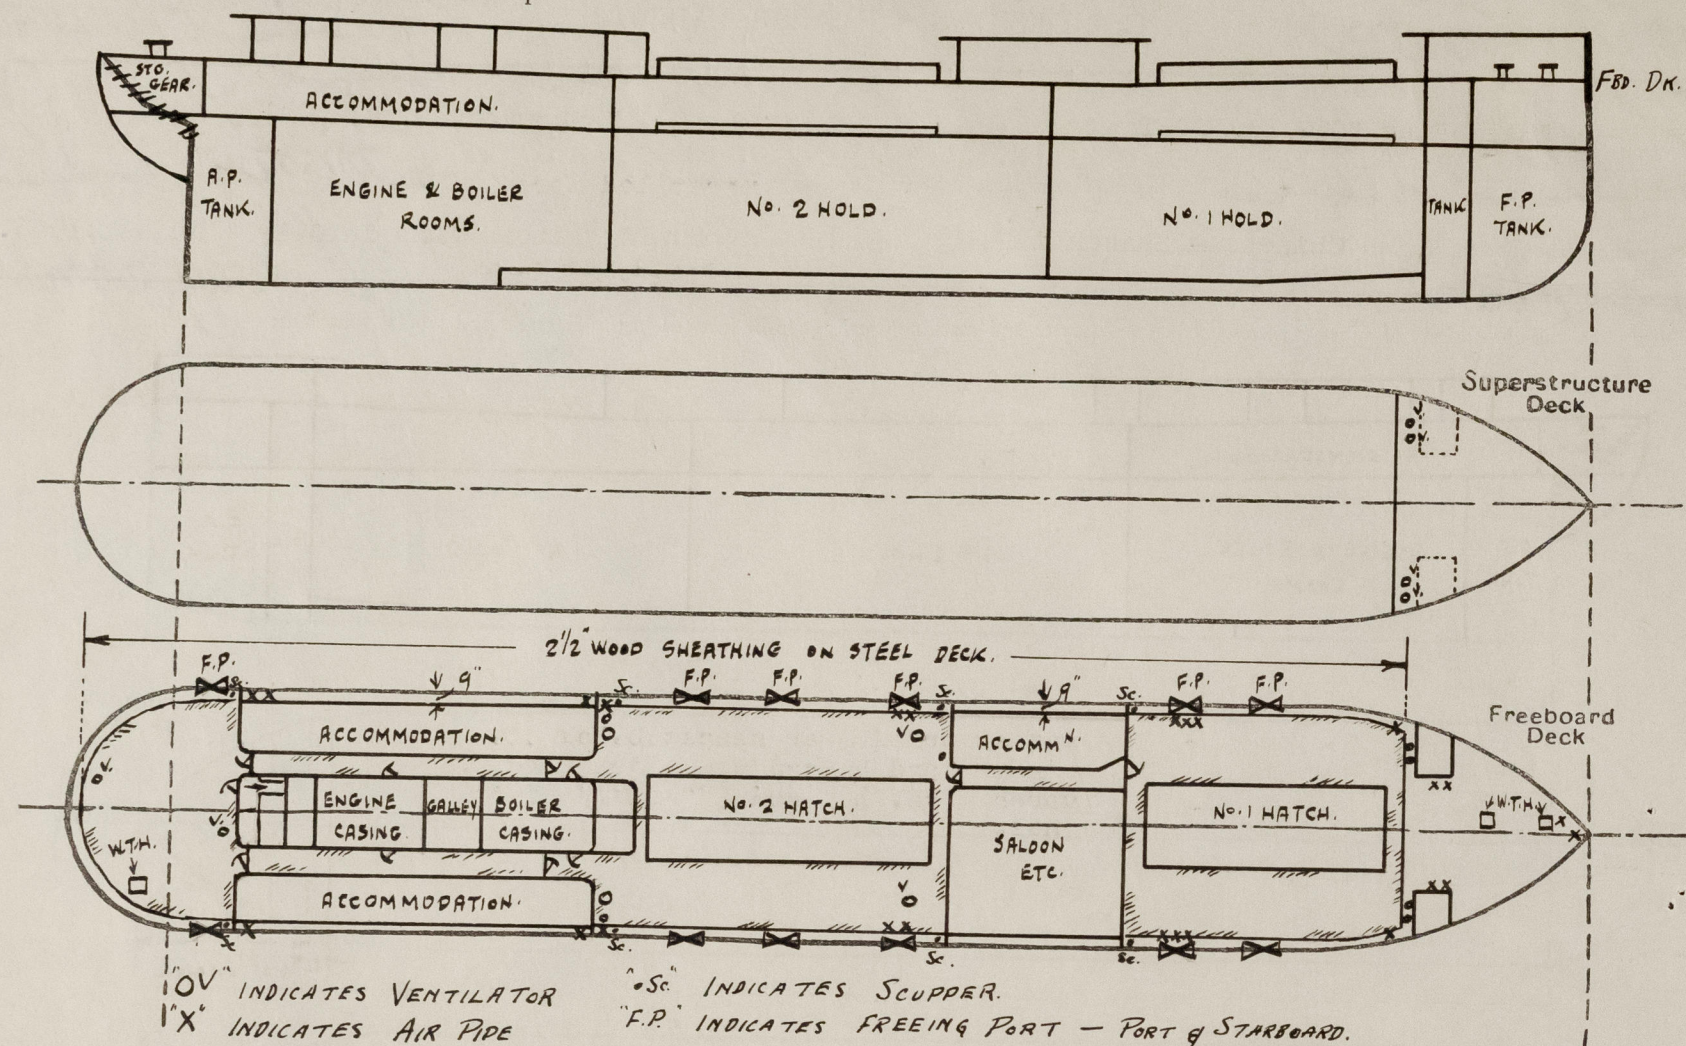 STG.
GEAR.
ACCOMMODATION.
FBD. DK.
A.P.
TANK.
ENGINE & BOILER
ROOMS.
No. 2 HOLD.
No. 1 HOLD.
TANK
F.P.
TANK.
Superstructure
Deck
V
OV
V
OV
2½" WOOD SHEATHING ON STEEL DECK.
F.P.
Sc.
9"
Sc.
F.P.
F.P.
F.P.
Sc.
9"
Sc.
F.P.
F.P.
X X
X X
XX
XXX
X
Freeboard
Deck
OV.
ACCOMMODATION.
VO
ACCOMMN.
ENGINE
CASING.
GALLEY
BOILER
CASING.
No. 2 HATCH.
No. 1 HATCH.
XX
W.T.H.
X
X
V.
O
W.T.H.
SALOON
ETC.
ACCOMMODATION.
V
O
XX
X X
X X
XX
XXX
X
Sc.
Sc.
Sc.
"OV" INDICATES VENTILATOR
"•Sc." INDICATES SCUPPER.
"X" INDICATES AIR PIPE
"F.P." INDICATES FREEING PORT — PORT & STARBOARD.